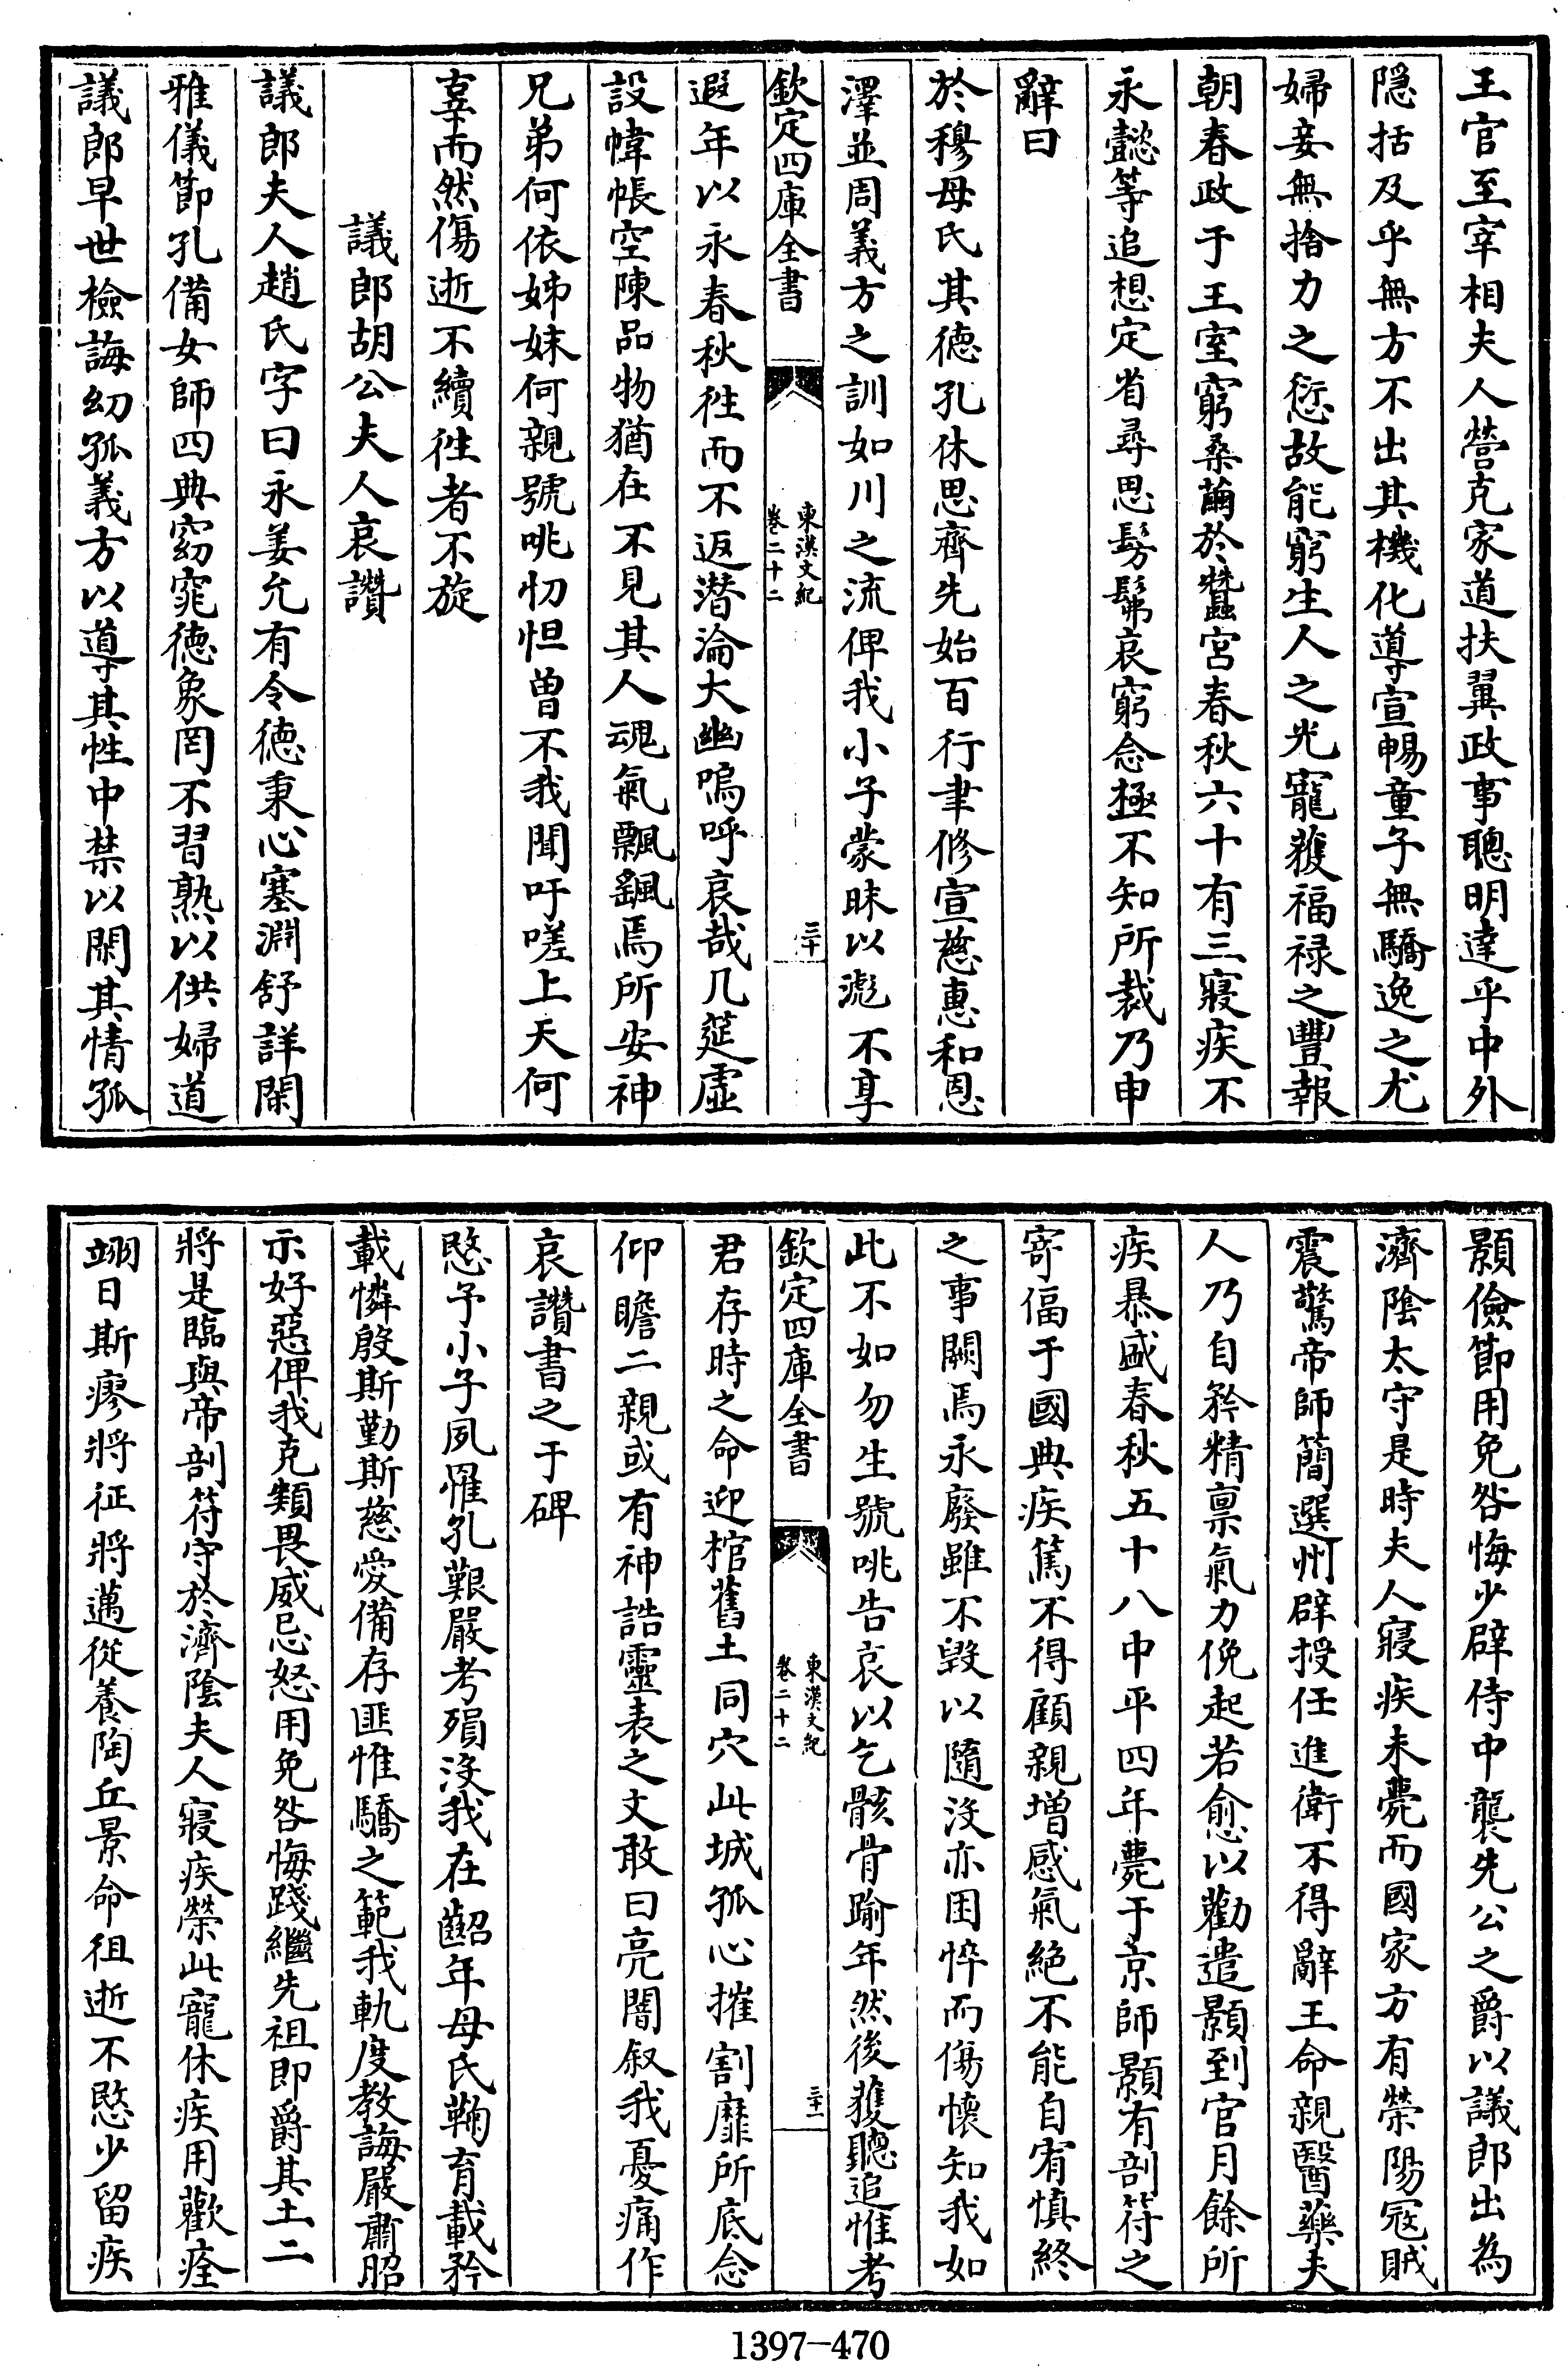 王官至宰相夫人營克家道扶翼政事聰明達乎中外
隱括及乎無方不出其機化導宣暢童子無驕逸之尤
婦妾無捨力之愆故能窮生人之光寵獲福祿之豐報
朝春政于王室窮桑繭於蠶宮春秋六十有三寢疾不
永懿等追想定省尋思髣髴哀窮念極不知所裁乃申
辭曰
於穆母氏其德孔休思齊先始百行聿修宣慈惠和恩
澤並周義方之訓如川之流俾我小子蒙昧以彪不享
欽定四庫全書
東漢文紀
卷二十二
三十
遐年以永春秋往而不返潛淪大幽嗚呼哀哉几筵虛
設幃帳空陳品物猶在不見其人魂氣飄颻焉所安神
兄弟何依姊妹何親號咷忉怛曾不我聞吁嗟上天何
辜而然傷逝不續往者不旋
議郎胡公夫人哀讚
議郎夫人趙氏字曰永姜允有令德秉心塞淵舒詳閑
雅儀節孔備女師四典窈窕德象罔不習熟以供婦道
議郎早世檢誨幼孤義方以導其性中禁以閑其情孤
顥儉節用免咎悔少辟侍中襲先公之爵以議郎出為
濟陰太守是時夫人寢疾未薨而國家方有滎陽寇賊
震驚帝師簡選州辟授任進衛不得辭王命親醫藥夫
人乃自矜精稟氣力俛起若愈以勸遣顥到官月餘所
疾暴盛春秋五十八中平四年薨于京師顥有剖符之
寄偪于國典疾篤不得顧親增感氣絕不能自宥慎終
之事闕焉永廢雖不毀以隨沒亦困悴而傷懷知我如
此不如勿生號咷告哀以乞骸骨踰年然後獲聽追惟考
欽定四庫全書
東漢文紀
卷二十二
三十一
君存時之命迎棺舊土同穴此城孤心摧割靡所底念
仰瞻二親或有神誥靈表之文敢曰亮闇敘我憂痛作
哀讚書之于碑
愍予小子夙罹孔艱嚴考殞沒我在齠年母氏鞠育載矜
載憐殷斯勤斯慈愛備存匪惟驕之範我軌度教誨嚴肅昭
示好惡俾我克類畏威忌怒用免咎悔踐繼先祖即爵其土二
將是臨與帝剖符守於濟陰夫人寢疾榮此寵休疾用歡痊
翊日斯瘳將征將邁從養陶丘景命徂逝不愍少留疾
1397-470